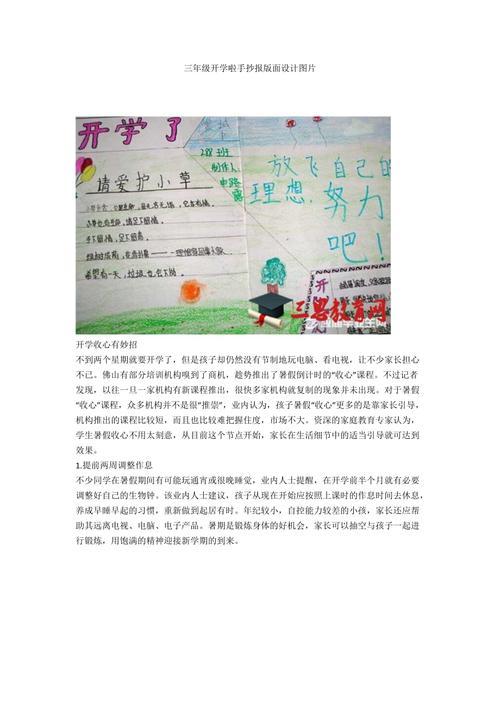 三年级开学啦手抄报版面设计图片
开学了
288班
制作人:
请爱护小草
放飞自己的
理想，努力
吧！
手下留情，足下留青。
开
三思教育网
开学收心有妙招
不到两个星期就要开学了，但是孩子却仍然没有节制地玩电脑、看电视，让不少家长担心
不已。佛山有部分培训机构嗅到了商机，趁势推出了暑假倒计时的“收心”课程。不过记者
发现，以往一旦一家机构有新课程推出，很快多家机构就复制的现象并未出现。对于暑假
“收心”课程，众多机构并不是很“推崇”，业内认为，孩子暑假“收心”更多的是靠家长引导，
机构推出的课程比较短，而且也比较难把握住度，市场不大。资深的家庭教育专家认为，
学生暑假收心不用太刻意，从目前这个节点开始，家长在生活细节中的适当引导就可达到
效果。
1.提前两周调整作息
不少同学在暑假期间有可能玩通宵或很晚睡觉，业内人士提醒，在开学前半个月就有必要
调整好自己的生物钟。该业内人士建议，孩子从现在开始应按照上课时的作息时间去休息，
养成早睡早起的习惯，重新做到起居有时。年纪较小，自控能力较差的小孩，家长还应帮
助其远离电视、电脑、电子产品。暑期是锻炼身体的好机会，家长可以抽空与孩子一起进
行锻炼，用饱满的精神迎接新学期的到来。